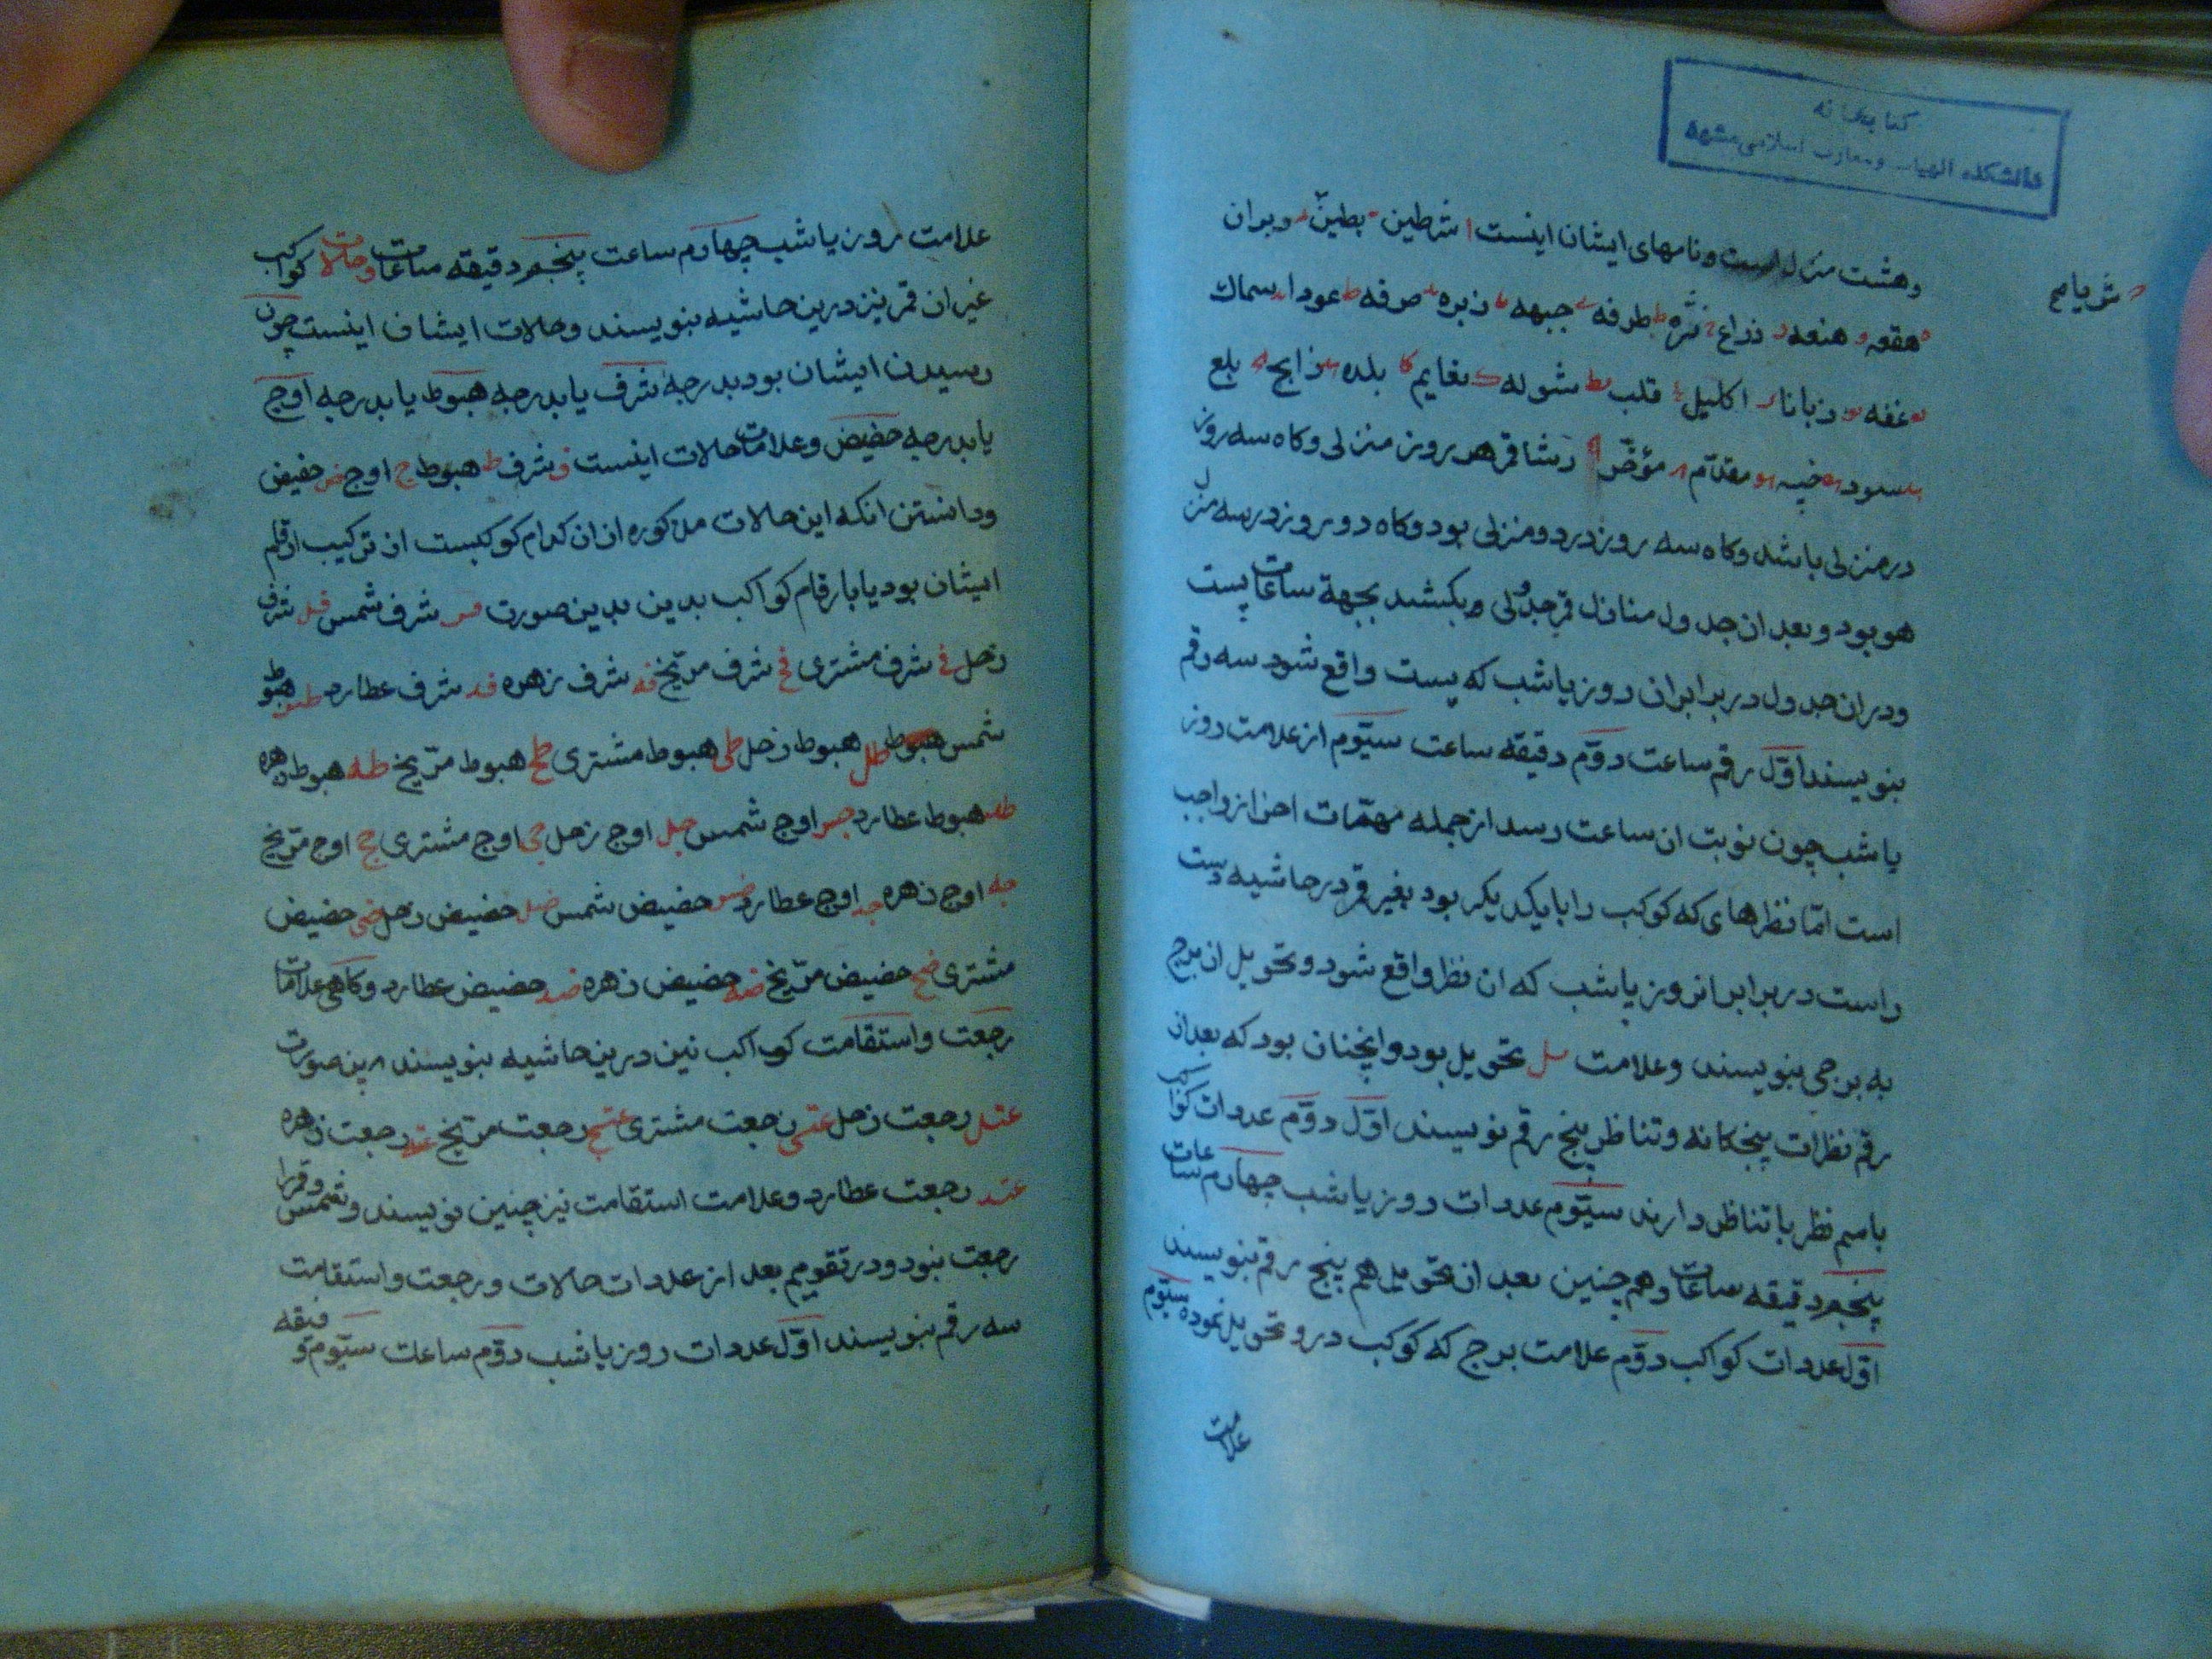 كتابخانه
دانشكده الهيات و معارف اسلامی مشهد
وهشت منزل است و نامهای ایشان اینست ا شرطین بطین و بران
ثریا صح
هقعه هنعه ذراع نثره طرفه جبهه زبره صرفه عودا سماك
غفه زبانا اکلیل قلب شوله نعایم بلده زابح بلع
سعود خبیه مقدّم مؤخّر قمر هر روز منزلی و کاه سه روز
در منزلی باشد و کاه سه روز در دو منزلی بود و کاه دو روز در سه منزل
هو بود و بعد ان جدول منازل قمر جدولی بکشند بجهة ساعات پست
و دران جدول در برابر ان روز یا شب که پست واقع شود سه رقم
بنویسند اوّل رقم ساعت دوّم دقیقه ساعت سیّوم از علامت روز
یا شب چون نوبت ان ساعت رسد از جمله مهمّات احتراز واجب
است امّا نظرهای که کوکب را با یکدیکر بود بغیر قمر در حاشیه دست
راست در برابر انروز یا شب که ان نظر واقع شود و تحویل ان برج
به برجی بنویسند و علامت سل تحویل بود وانچنان بود که بعد ان
رقم نظرات پنجکانه و تناظر پنج رقم نویسند اوّل دوّم عددات کواکب
با سیم نظر با تناظر دارند سیّوم عددات روز یا شب چهارم ساعات
پنجم دقیقه ساعات و هم چنین بعد ان تحویل هم پنج رقم بنویسند
اوّل عددات کواکب دوّم علامت برج که کوکب درو تحویل نموده سیّوم
علامت
علامت روز یا شب چهارم ساعت پنجم دقیقه ساعات و حالات کواکب
غیر ان قمر نیز درین حاشیه بنویسند و حالات ایشان اینست چون
رسیدن ایشان بود بدرجهٔ شرف یا بدرجه هبوط یا بدرجه اوج
یا بدرجه حضیض و علامات حالات اینست ف شرف ط هبوط ج اوج ض حضیض
و دانستن انکه این حالات مذکوره ازان کدام کوکبست از ترکیب ارقام
ایشان بود یا بارقام کواکب بدین بدین صورت فس شرف شمس فل شرف
زحل فی شرف مشتری فخ شرف مرّیخ فه شرف زهره فد شرف عطارد طس هبوط
شمس هبوط طل هبوط زحل طی هبوط مشتری طخ هبوط مرّیخ طه هبوط زهره
طد هبوط عطارد جس اوج شمس جل اوج زحل جی اوج مشتری جخ اوج مرّیخ
جه اوج زهره جد اوج عطارد ضس حضیض شمس ضل حضیض زحل ضی حضیض
مشتری ضخ حضیض مرّیخ ضه حضیض زهره ضد حضیض عطارد و کاهی علامات
رجعت و استقامت کواکب نیز درین حاشیه بنویسند برین صورت
عتل رجعت زحل عتی رجعت مشتری عتخ رجعت مریخ عته رجعت زهره
عتد رجعت عطارد و علامت استقامت نیز چنین نویسند و شمس و قمر را
رجعت نبود و در تقویم بعد از عددات حالات و رجعت و استقامت
سه رقم بنویسند اوّل عددات روز یا شب دوّم ساعت سیّوم دقیقه